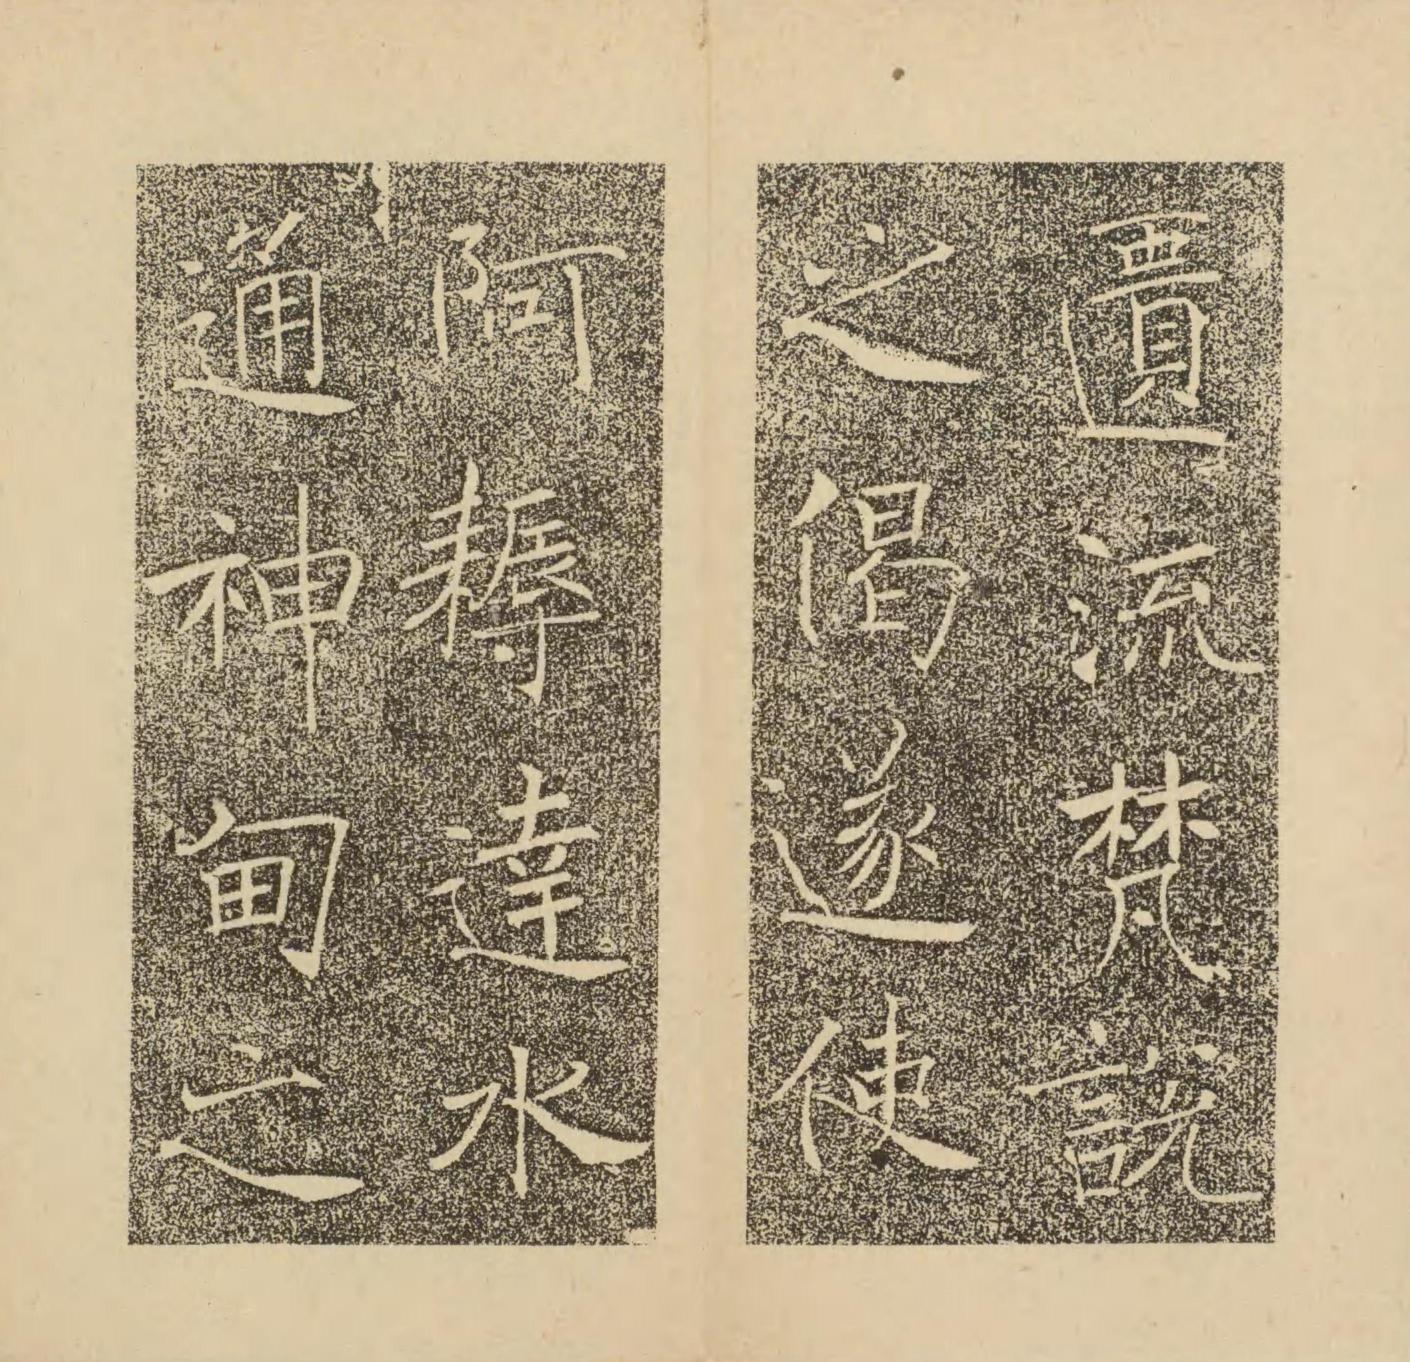 匱流梵說
之偈遂使
阿耨達水
通神甸之